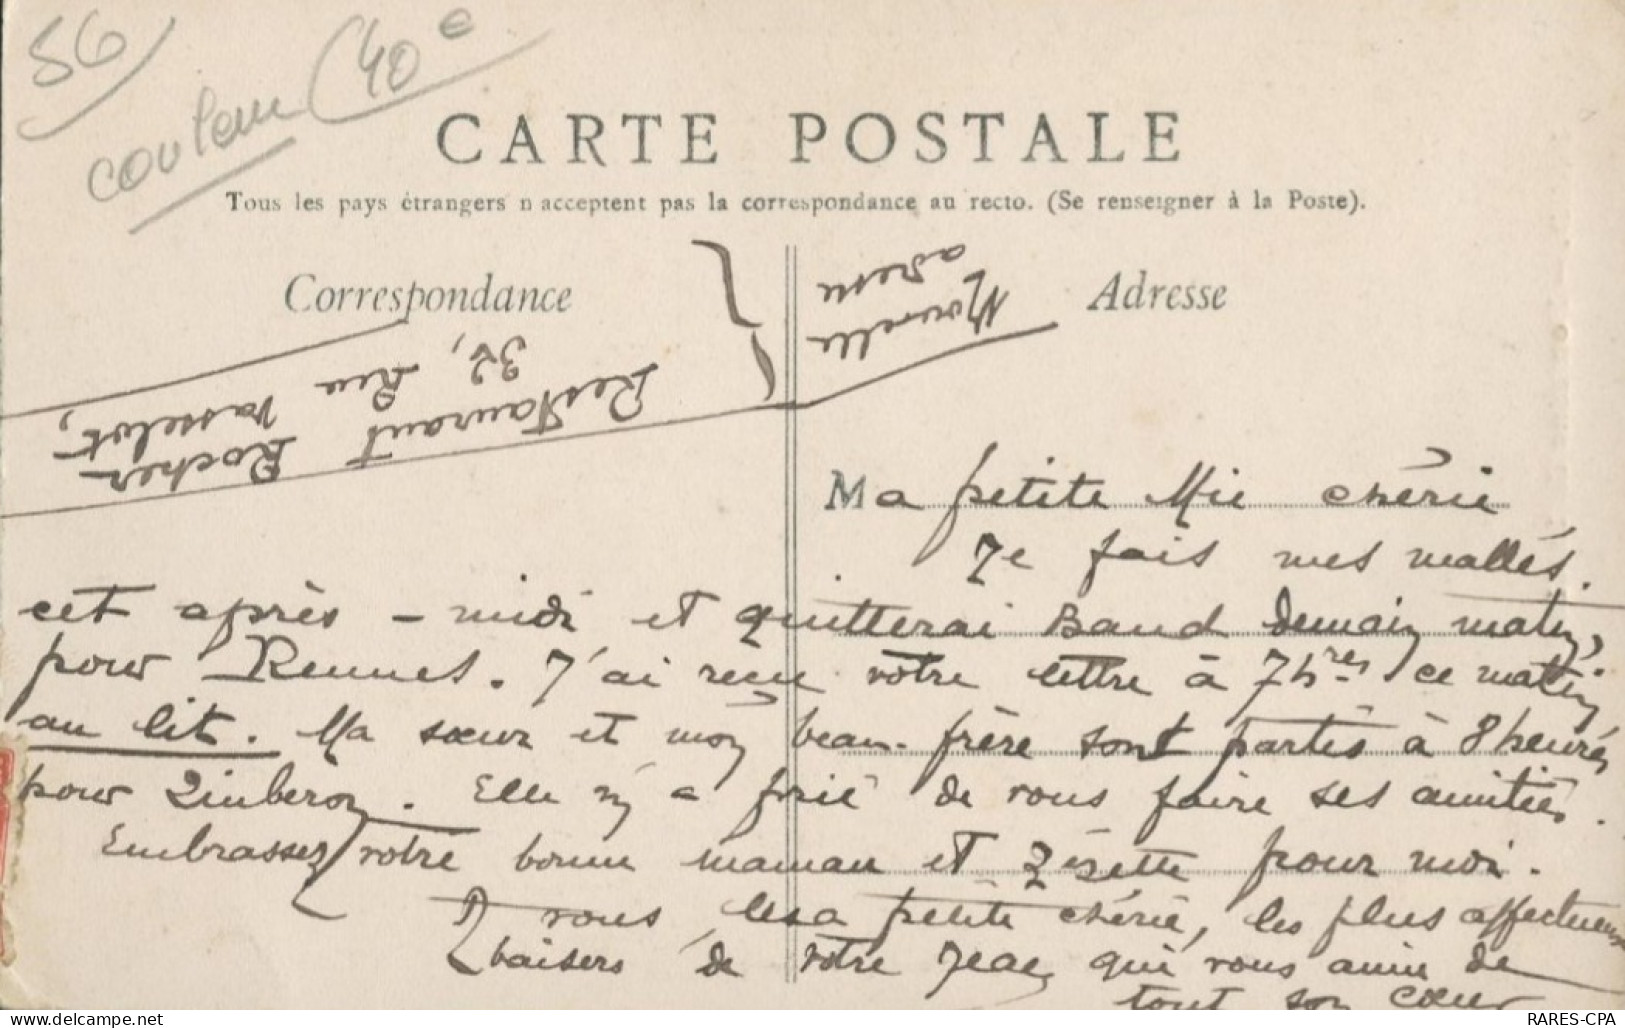 56
couleur (40 e
CARTE POSTALE
Tous les pays étrangers n'acceptent pas la correspondance au recto. (Se renseigner à la Poste).
Correspondance
Adresse
Nouvelle
adresse
Restaurant Rocher
32, Rue Vasselot,
Ma petite Mie chérie
Je fais mes malles
cet après-midi et quitterai Baud demain matin,
pour Rennes. J'ai reçu votre lettre à 7 hres ce matin
au lit. Ma sœur et mon beau-frère sont partis à 8 heures
pour Quiberon. Elle m'a prié de vous faire ses amitiés.
Embrassez votre bonne maman et Zézette pour moi.
A vous, ma petite chérie, les plus affectueux
baisers de votre Jean qui vous aime de
tout son cœur
RARES-CPA
www.delcampe.net